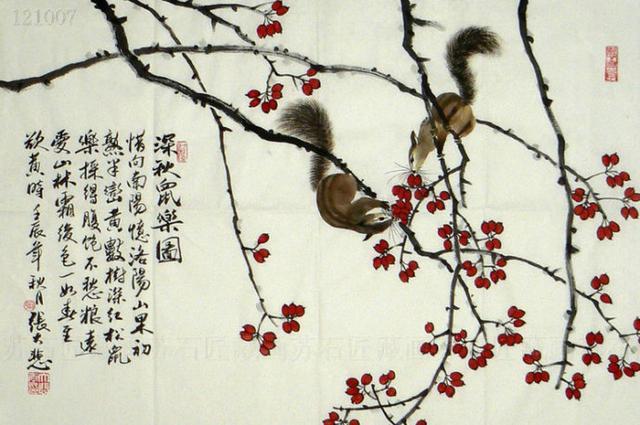 121007
深秋鼠樂圖
惜向南陽憶洛陽山果初
熟半巒黄數樹深红松鼠
樂採得腹饱不愁粮遠
愛山林霜後色一如春至
欲黄時 壬辰年秋月 張大悲